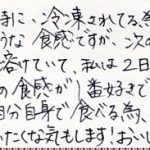 特に、冷凍されてる為
うな食感ですが、次の
溶けていて、私は2日
の食感が1番好きで
自分自身で食べる為、
いたくな気もします!おい